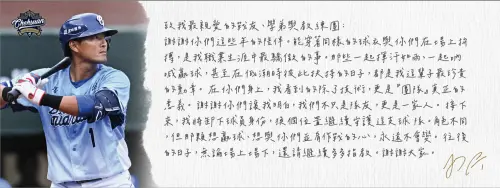 Chehsuan
致我最親愛的戰友、學弟與教練團：
謝謝你們這些年的陪伴，能穿著同樣的球衣與你們在場上拚
搏，是我職業生涯中最驕傲的事。那些一起揮汗如雨、一起吶
喊贏球，甚至在低潮時彼此扶持的日子，都是我這輩子最珍貴
的勳章。在你們身上，我看到的除了技術，更是“團隊”真正的
意義。謝謝你們讓我明白，我們不只是隊友，更是一家人。接下
來，我將卸下球員身份，換個位置繼續守護這支球隊。角色不同，
但那顆想贏球、想與你們並肩作戰的心，永遠不會變。往後
的日子，無論場上場下，還請繼續多多指教。謝謝大家。
1